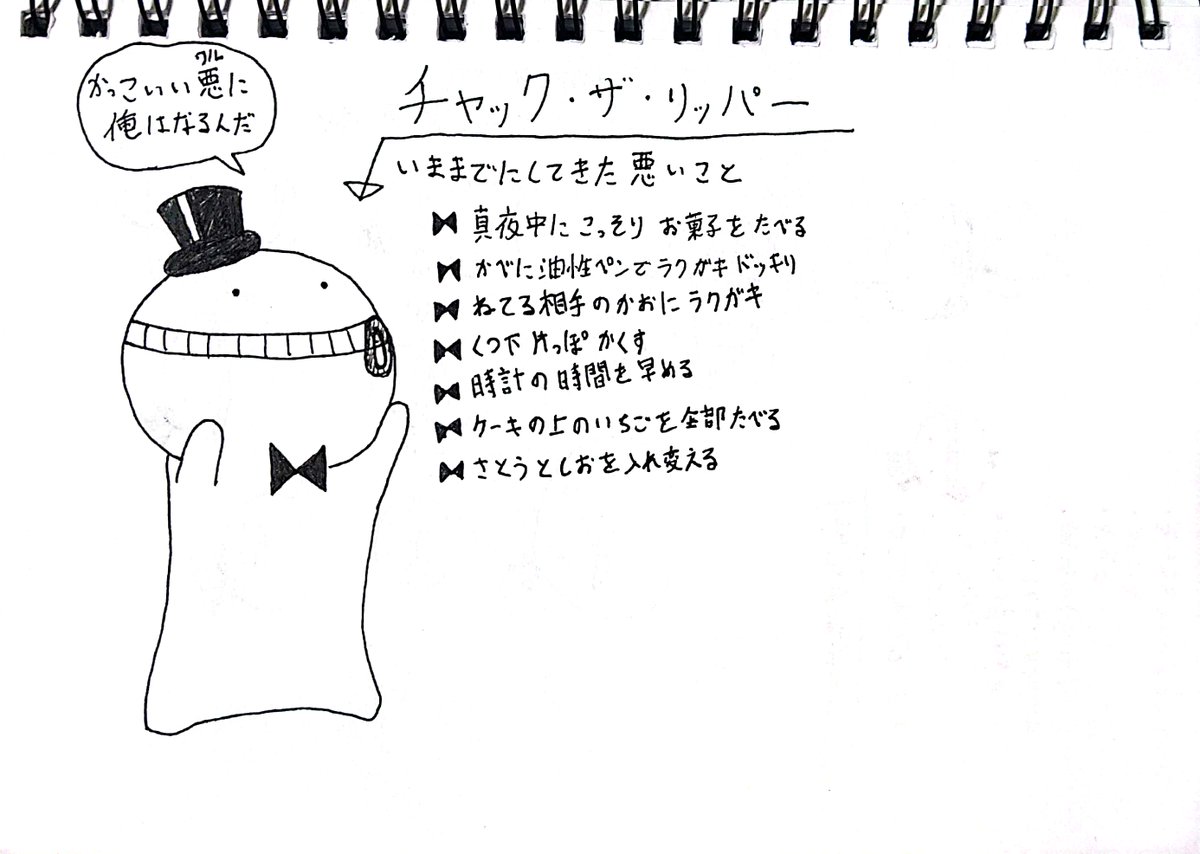 かっこいい悪に
ワル
俺はなるんだ
チャック・ザ・リッパー
いままでにしてきた悪いこと
真夜中にこっそりお菓子をたべる
かべに油性ペンでラクガキドッキリ
ねてる相手のかおにラクガキ
くつ下片っぽかくす
時計の時間を早める
ケーキの上のいちごを全部たべる
さとうとしおを入れ変える